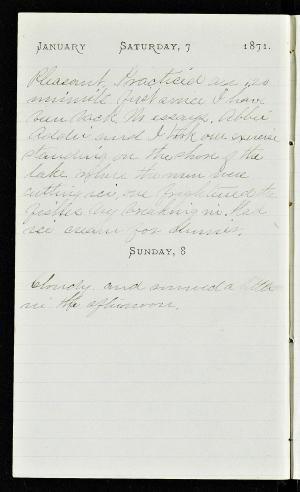 JANUARY SATURDAY, 7 1871.
Pleasant. Practiced an 20
minutes first since I have
been back. M essays. Abbie
Addie and I took our exercise
standing on the shore of the
lake where the men were
cutting ice, we frightened the
fishes by breaking in. Had
ice cream for dinner.
SUNDAY, 8
Cloudy and snowed a little
in the afternoon.